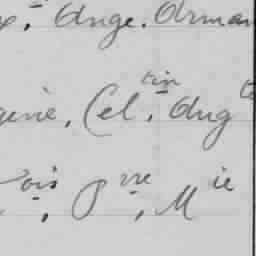 Ange. Arman
gène, Cel.tin, Aug
ois, Prre, Mie